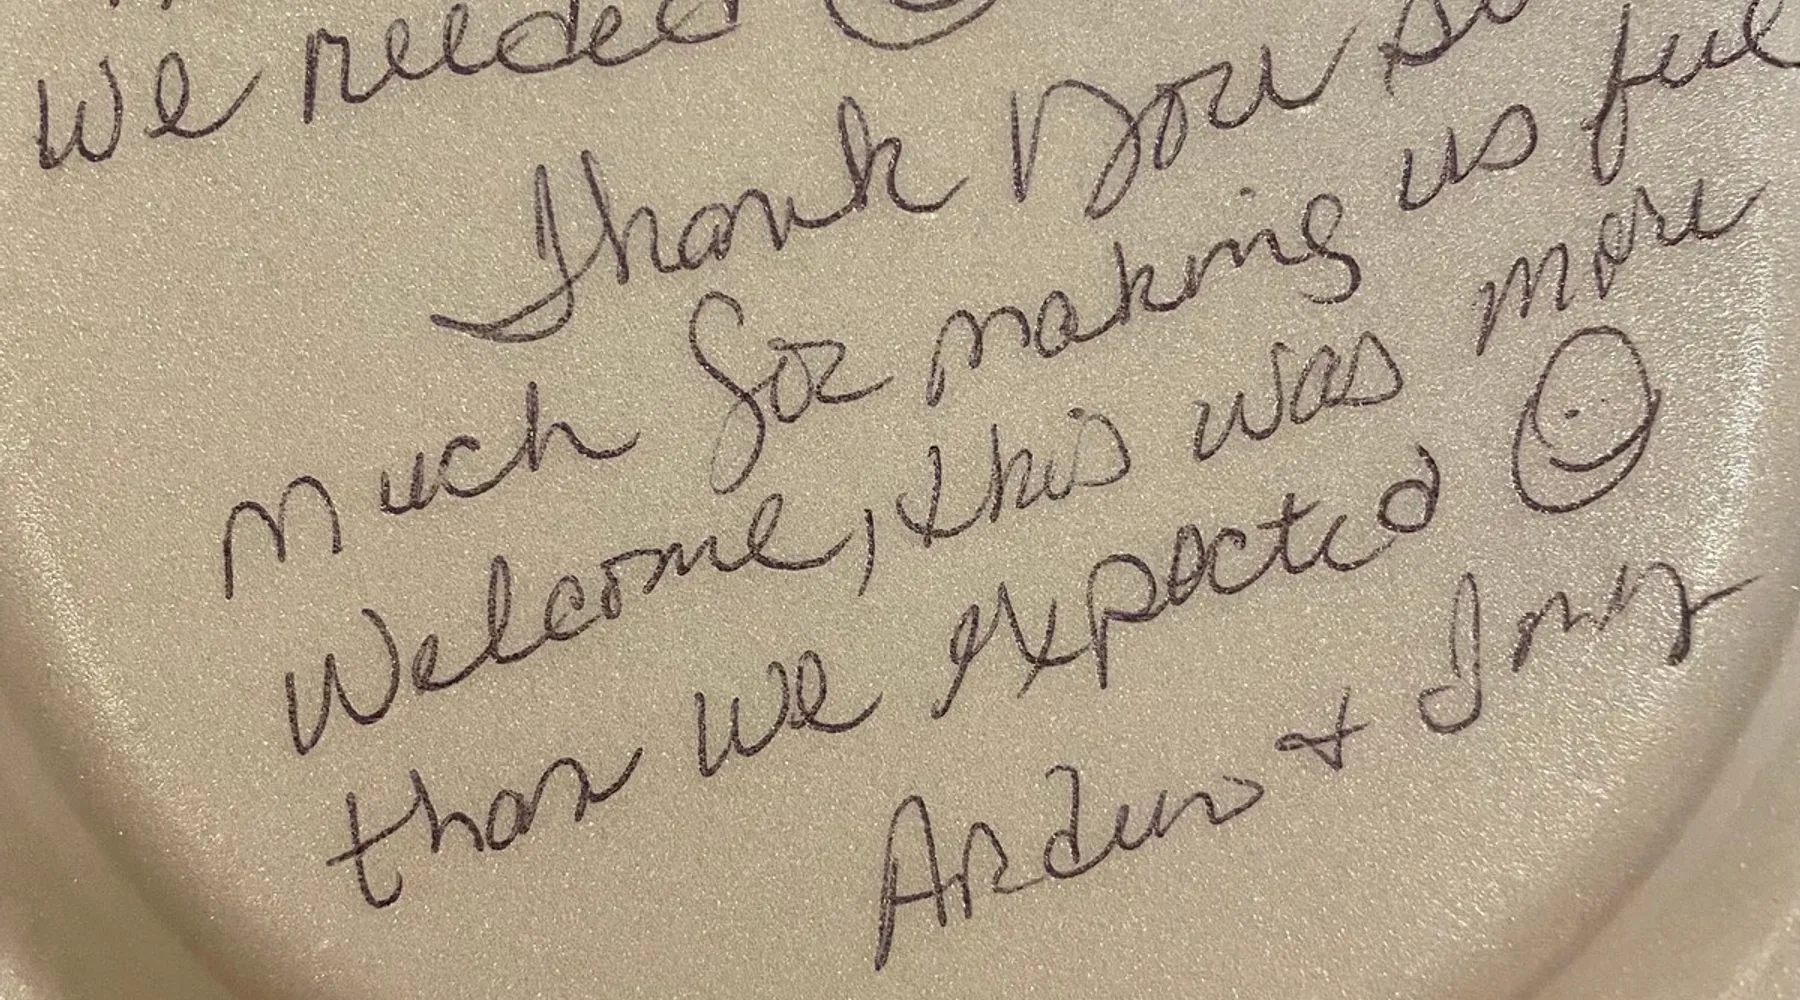 We needed
Thank You so
Much for making us feel
Welcome, this was more
than we expected
&